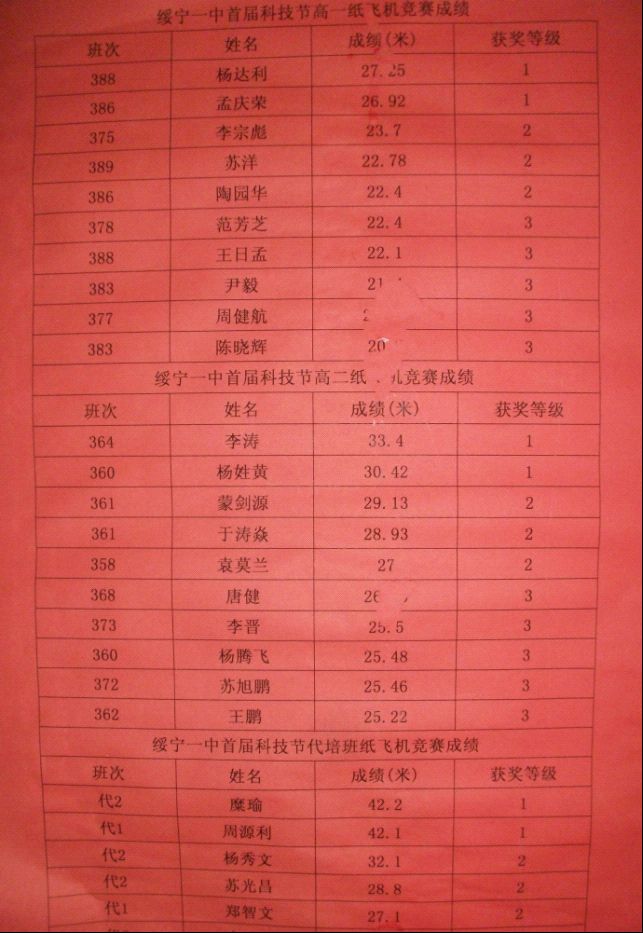 绥宁一中首届科技节高一纸飞机竞赛成绩
班次 姓名 成绩(米) 获奖等级
388 杨达利 27.25 1
386 孟庆荣 26.92 1
375 李宗彪 23.7 2
389 苏洋 22.78 2
386 陶园华 22.4 2
378 范芳芝 22.4 3
388 王日孟 22.1 3
383 尹毅 3
377 周健航 3
383 陈晓辉 20 3
绥宁一中首届科技节高二纸 机竞赛成绩
班次 姓名 成绩(米) 获奖等级
364 李涛 33.4 1
360 杨姓黄 30.42 1
361 蒙剑源 29.13 2
361 于涛焱 28.93 2
358 袁莫兰 27 2
368 唐健 3
373 李晋 25.5 3
360 杨腾飞 25.48 3
372 苏旭鹏 25.46 3
362 王鹏 25.22 3
绥宁一中首届科技节代培班纸飞机竞赛成绩
班次 姓名 成绩(米) 获奖等级
代2 糜瑜 42.2 1
代1 周源利 42.1 1
代2 杨秀文 32.1 2
代2 苏光昌 28.8 2
代1 郑智文 27.1 2